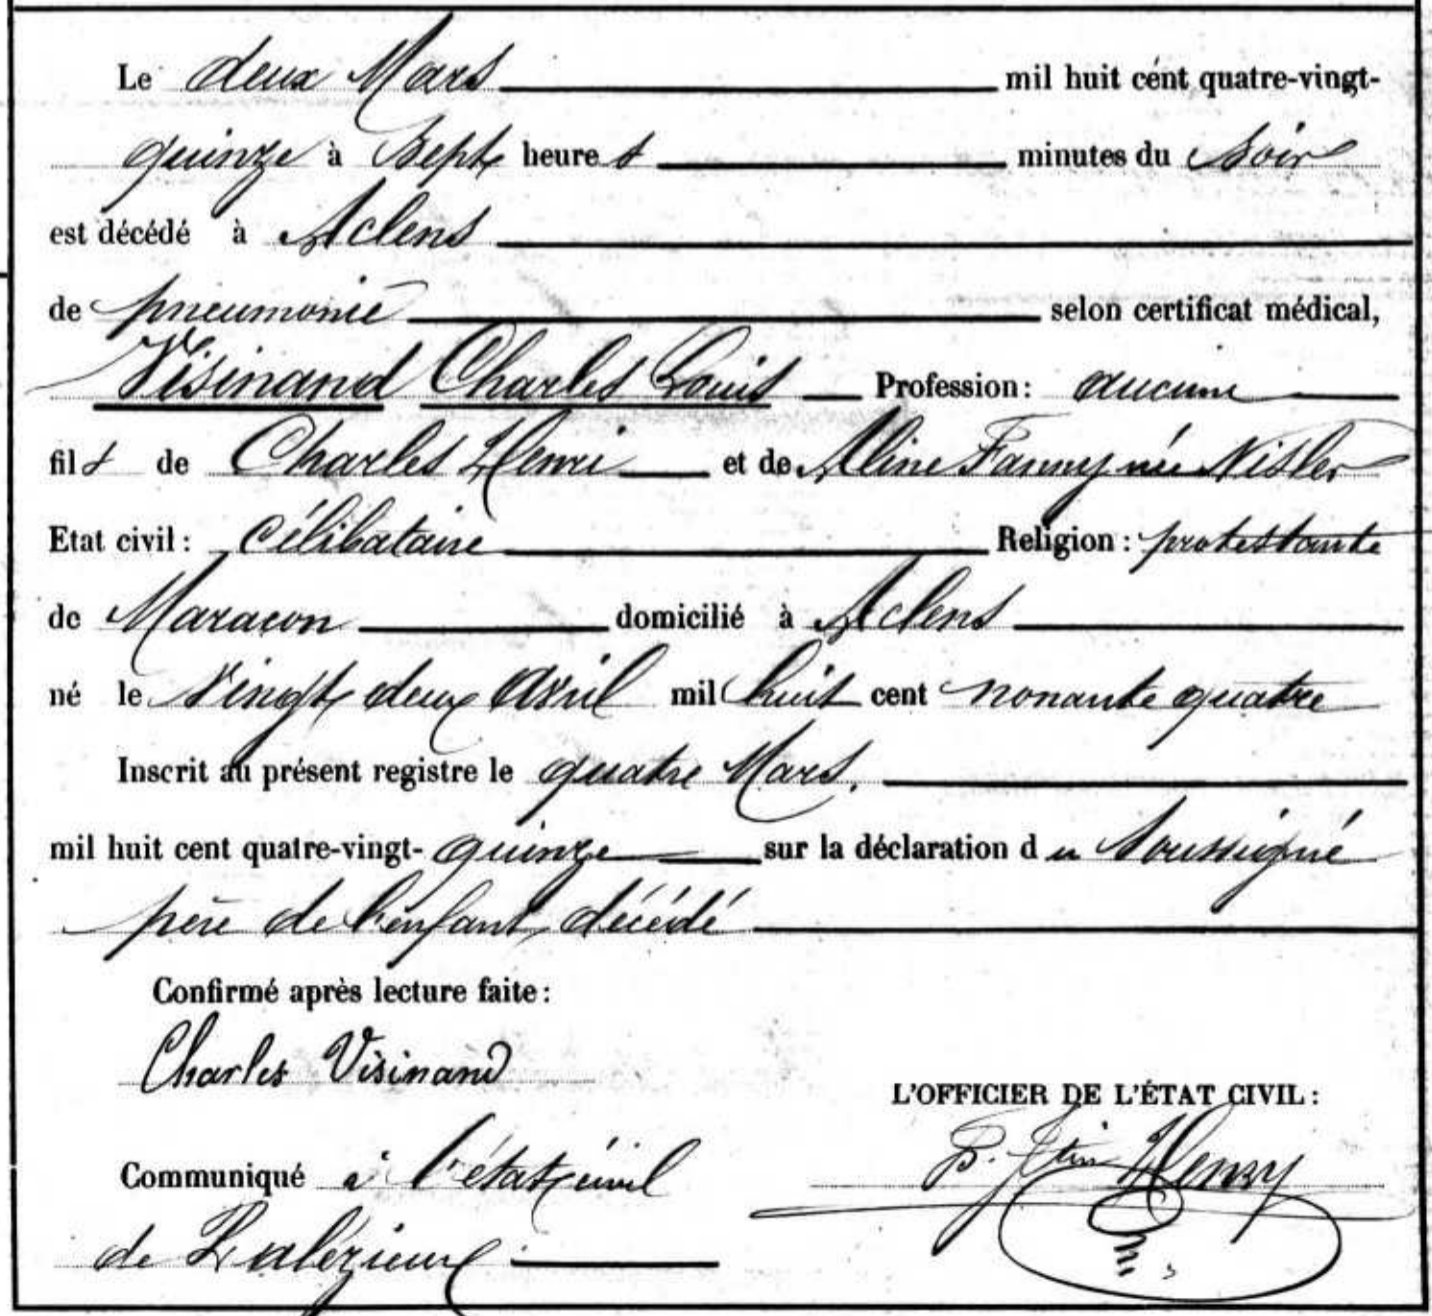 Le deux Mars mil huit cent quatre-vingt-
quinze à Sept heures minutes du Soir
est décédé à Aclens
de pneumonie selon certificat médical,
Visinand Charles Louis Profession: aucune
fils de Charles Henri et de Aline Fanny née Nisler
Etat civil: célibataire Religion: protestante
de Maracon domicilié à Aclens
né le Vingt deux Avril mil huit cent nonante quatre
Inscrit au présent registre le quatre Mars.
mil huit cent quatre-vingt-quinze sur la déclaration du Soussigné
père de l'enfant décédé
Confirmé après lecture faite:
Charles Visinand
L'OFFICIER DE L'ÉTAT CIVIL:
Henry
Communiqué à l'état civil
de Palézieux